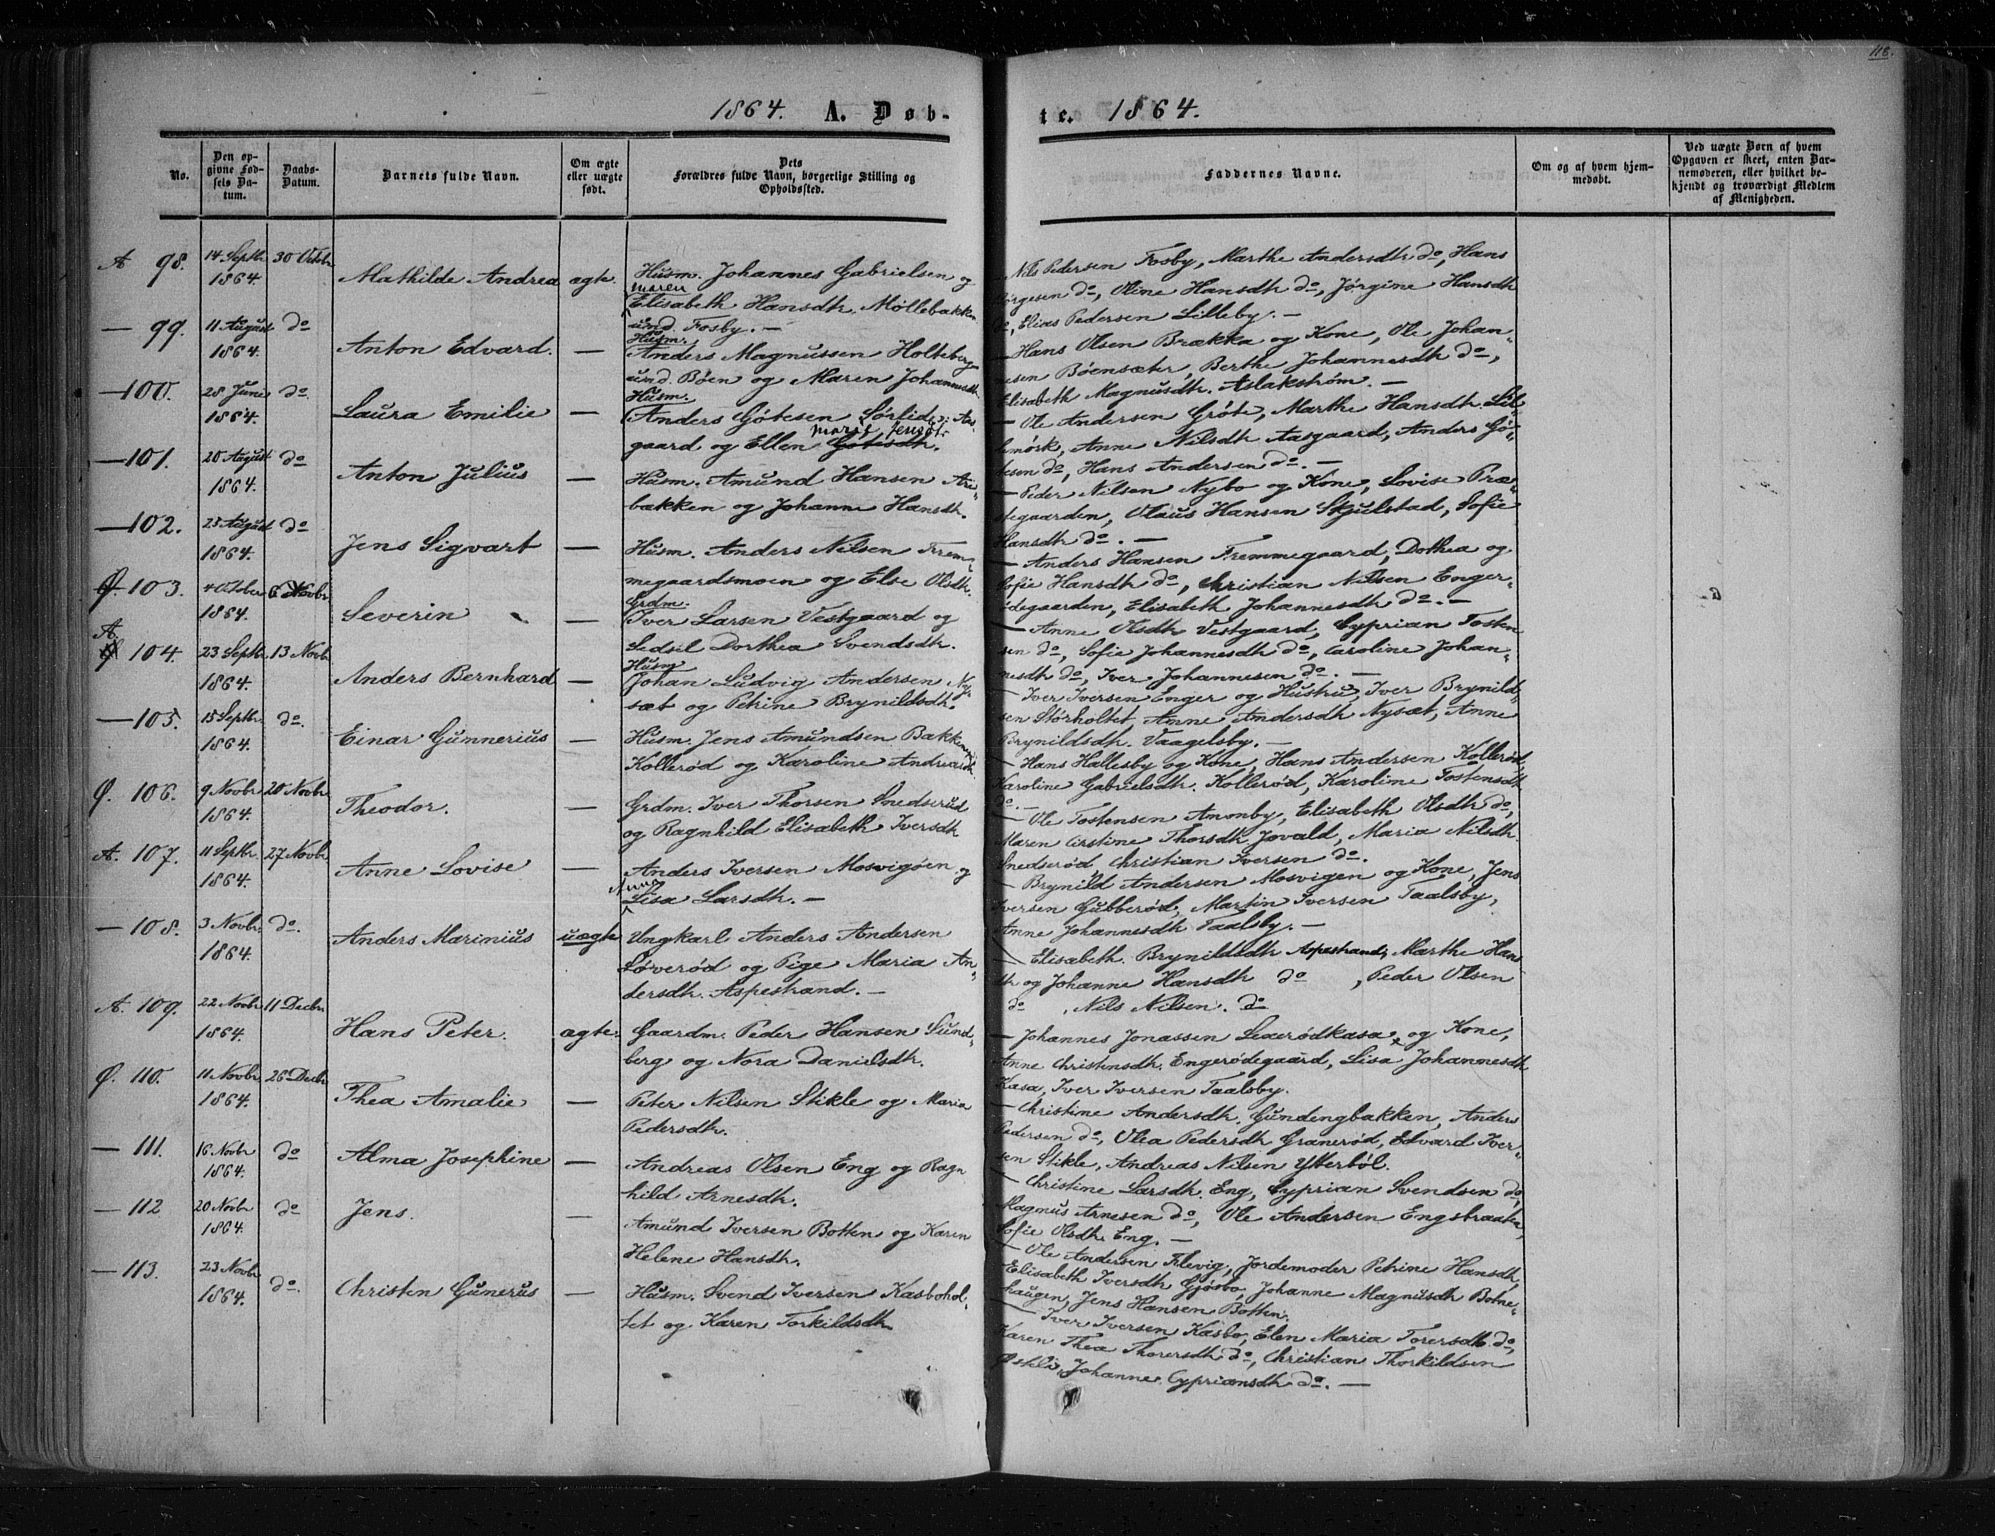 118.
1864. A. Døb-
te. 1864.
No.
Den op-
givne Fød-
sels Da-
tum.
Daabs-
Datum.
Barnets fulde Navn.
Om ægte
eller uægte
født.
Dets
Forældres fulde Navn, borgerlige Stilling og
Opholdssted.
Faddernes Navne.
Om og af hvem hjem-
medøbt.
Ved uægte Børn af hvem
Opgaven er skeet, enten Bar-
nemoderen, eller hvilket be-
kjendt og troværdigt Medlem
af Menigheden.
A 98. 14 Septbr 1864. 30 Octobr Mathilde Andrea ægte.
Husm. Johannes Gabrielsen og
maren
Elisabeth Hansdtr. Møllebakken
und. Fosby. —
Nils Pedersen Fosby, Marthe Andersdtr do, Hans
Jørgesen do, Oline Hansdtr do, Jørgine Hansdtr
do, Elias Pedersen Lilleby. —
— 99. 11 August 1864. do Anton Edvard. —
Husm.
Anders Magnussen Holteberg
und. Bøen og Maren Johannesdtr
— Hans Olsen Brække og Kone, Ole Johan-
nesen Bøensæter, Berthe Johannesdtr do,
Elisabeth Magnusdtr. Aslakstrøm. —
— 100. 28 Juni 1864. do. Laura Emilie —
Husm.
Anders Gøtesen Sørlide i Aas-
marie Jensdt.
gaard og Ellen Gøtesdtr.
— Ole Andersen Grøte, Marthe Hansdtr. Lil-
lemørk, Anne Nilsdtr Aasgaard, Anders Gø-
tesen do, Hans Andersen do. —
— 101. 20 August 1864. do Anton Julius —
Husm. Amund Hansen Are-
bakken og Johanne Hansdtr.
— Peder Nilsen Nybo og Kone, Lovise Præ-
stegaarden, Olaus Hansen Skjulstad, Sofie
Hansdtr do. —
— 102. 23 August 1864. do Jens Sigvart —
Husm. Anders Nilsen Frem-
megaardsmoen og Else Olsdtr.
— Anders Hansen Fremmegaard, Dothea og
Sofie Hansdtr do, Christian Nilsen Enger-
ødegaarden, Elisabeth Johannesdtr do. —
Ø. 103. 4 October 1864. 6 Novbr Severin —
Grdm.
Iver Larsen Vestgaard og
Sedsel Dorthea Svendsdtr.
— Anne Olsdtr Vestgaard, Cyprian Tosten
sen do, Sofie Johannesdtr do, Caroline Johan-
nesdtr do, Iver Johannesen do. —
A. 104. 23 Septbr 1864. 13 Novbr Anders Bernhard —
Husm
Johan Ludvig Andersen Ny-
sæt og Petrine Brynildsdtr.
— Iver Iversen Enger og Hustru, Iver Brynild-
sen Störholtet, Anne Andersdtr Nysæt, Anne
Brynildsdtr. Vaagelsby. —
— 105. 15 Septbr 1864. do. Einar Gunnerius —
Husm. Jens Amundsen Bakken
Kollerød og Karoline Andreasdtr
— Hans Hallesby og Kone, Hans Andersen Kollerød,
Karoline Gabrielsdtr. Kollerød, Karoline Tostensdtr
do. —
Ø. 106. 9 Novbr 1864. 20 Novbr Theodor. —
Grdm. Iver Thorsen Snedserud
og Ragnhild Elisabeth Iversdtr
— Ole Tostensen Amonby, Elisabeth Olsdtr do,
Maren Cirstine Thorsdtr Jovald, Maria Nilsdtr.
Snedserød, Christian Iversen do.
A. 107. 11 Septbr. 1864. 27 Novbr Anne Lovise —
Anders Iversen Mosvigøen og
Anne
Lisa Larsdtr. —
— Brynild Andersen Mosvigen og Kone, Jens
Iversen Gubberød, Martin Iversen Taalsby,
Anne Johannesdtr Taalsby. —
— 108. 3 Novbr. 1864. do. Anders Marinius uægte
Ungkarl Anders Andersen
Løverød og Pige Maria An-
dersdtr. Aspestrand. —
Elisabeth Brynildsdtr Aspestrand, Marthe Hans
dtr og Johanne Hansdtr do, Peder Olsen
do, Nils Nilsen. do
A. 109. 22 Novbr 1864. 11 Decbr Hans Peter. ægte.
Gaardm. Peder Hansen Sund-
berg og Nora Danielsdtr.
— Johannes Jonassen Lexerødkasa og Kone,
Anne Christensdtr. Engerødegaard, Lisa Johannesdtr
Kasa, Iver Iversen Taalsby.
Ø. 110. 11 Novbr 1864. 26 Decbr Thea Amalie —
Peter Nilsen Stikle og Maria
Pedersdtr.
— Christine Andersdtr. Gundengbakken, Anders
Pedersen do, Olea Pedersdtr Granerød, Edvard Iver-
sen Stikle, Andreas Nilsen Ytterbøl.
— 111. 16 Novbr 1864. do Alma Josephine —
Andreas Olsen Eng og Ragn
hild Arnesdtr.
— Christine Larsdtr. Eng, Cyprian Svendsen do,
Magnus Arnesen do, Ole Andersen Engsbraaten,
Sofie Olsdtr. Eng. —
— 112 20 Novbr 1864. do Jens. —
Amund Iversen Botten og Karen
Helene Hansdtr.
— Ole Andersen Filevig, Jordemoder Petrine Hansdtr,
Elisabeth Iversdtr Gjøsbo, Johanne Magnusdtr Botne-
haugen, Jens Hansen Botten.
— 113. 23 Novbr 1864. do. Christen Gunerus —
Husm. Svend Iversen Kasbohol-
tet og Karen Torkildsdtr.
— Iver Iversen Kasbo, Elen Maria Torersdtr. do,
Karen Thea Thorersdtr do, Christian Thorkildsen
Østlie, Johanne Cypriansdtr do. —